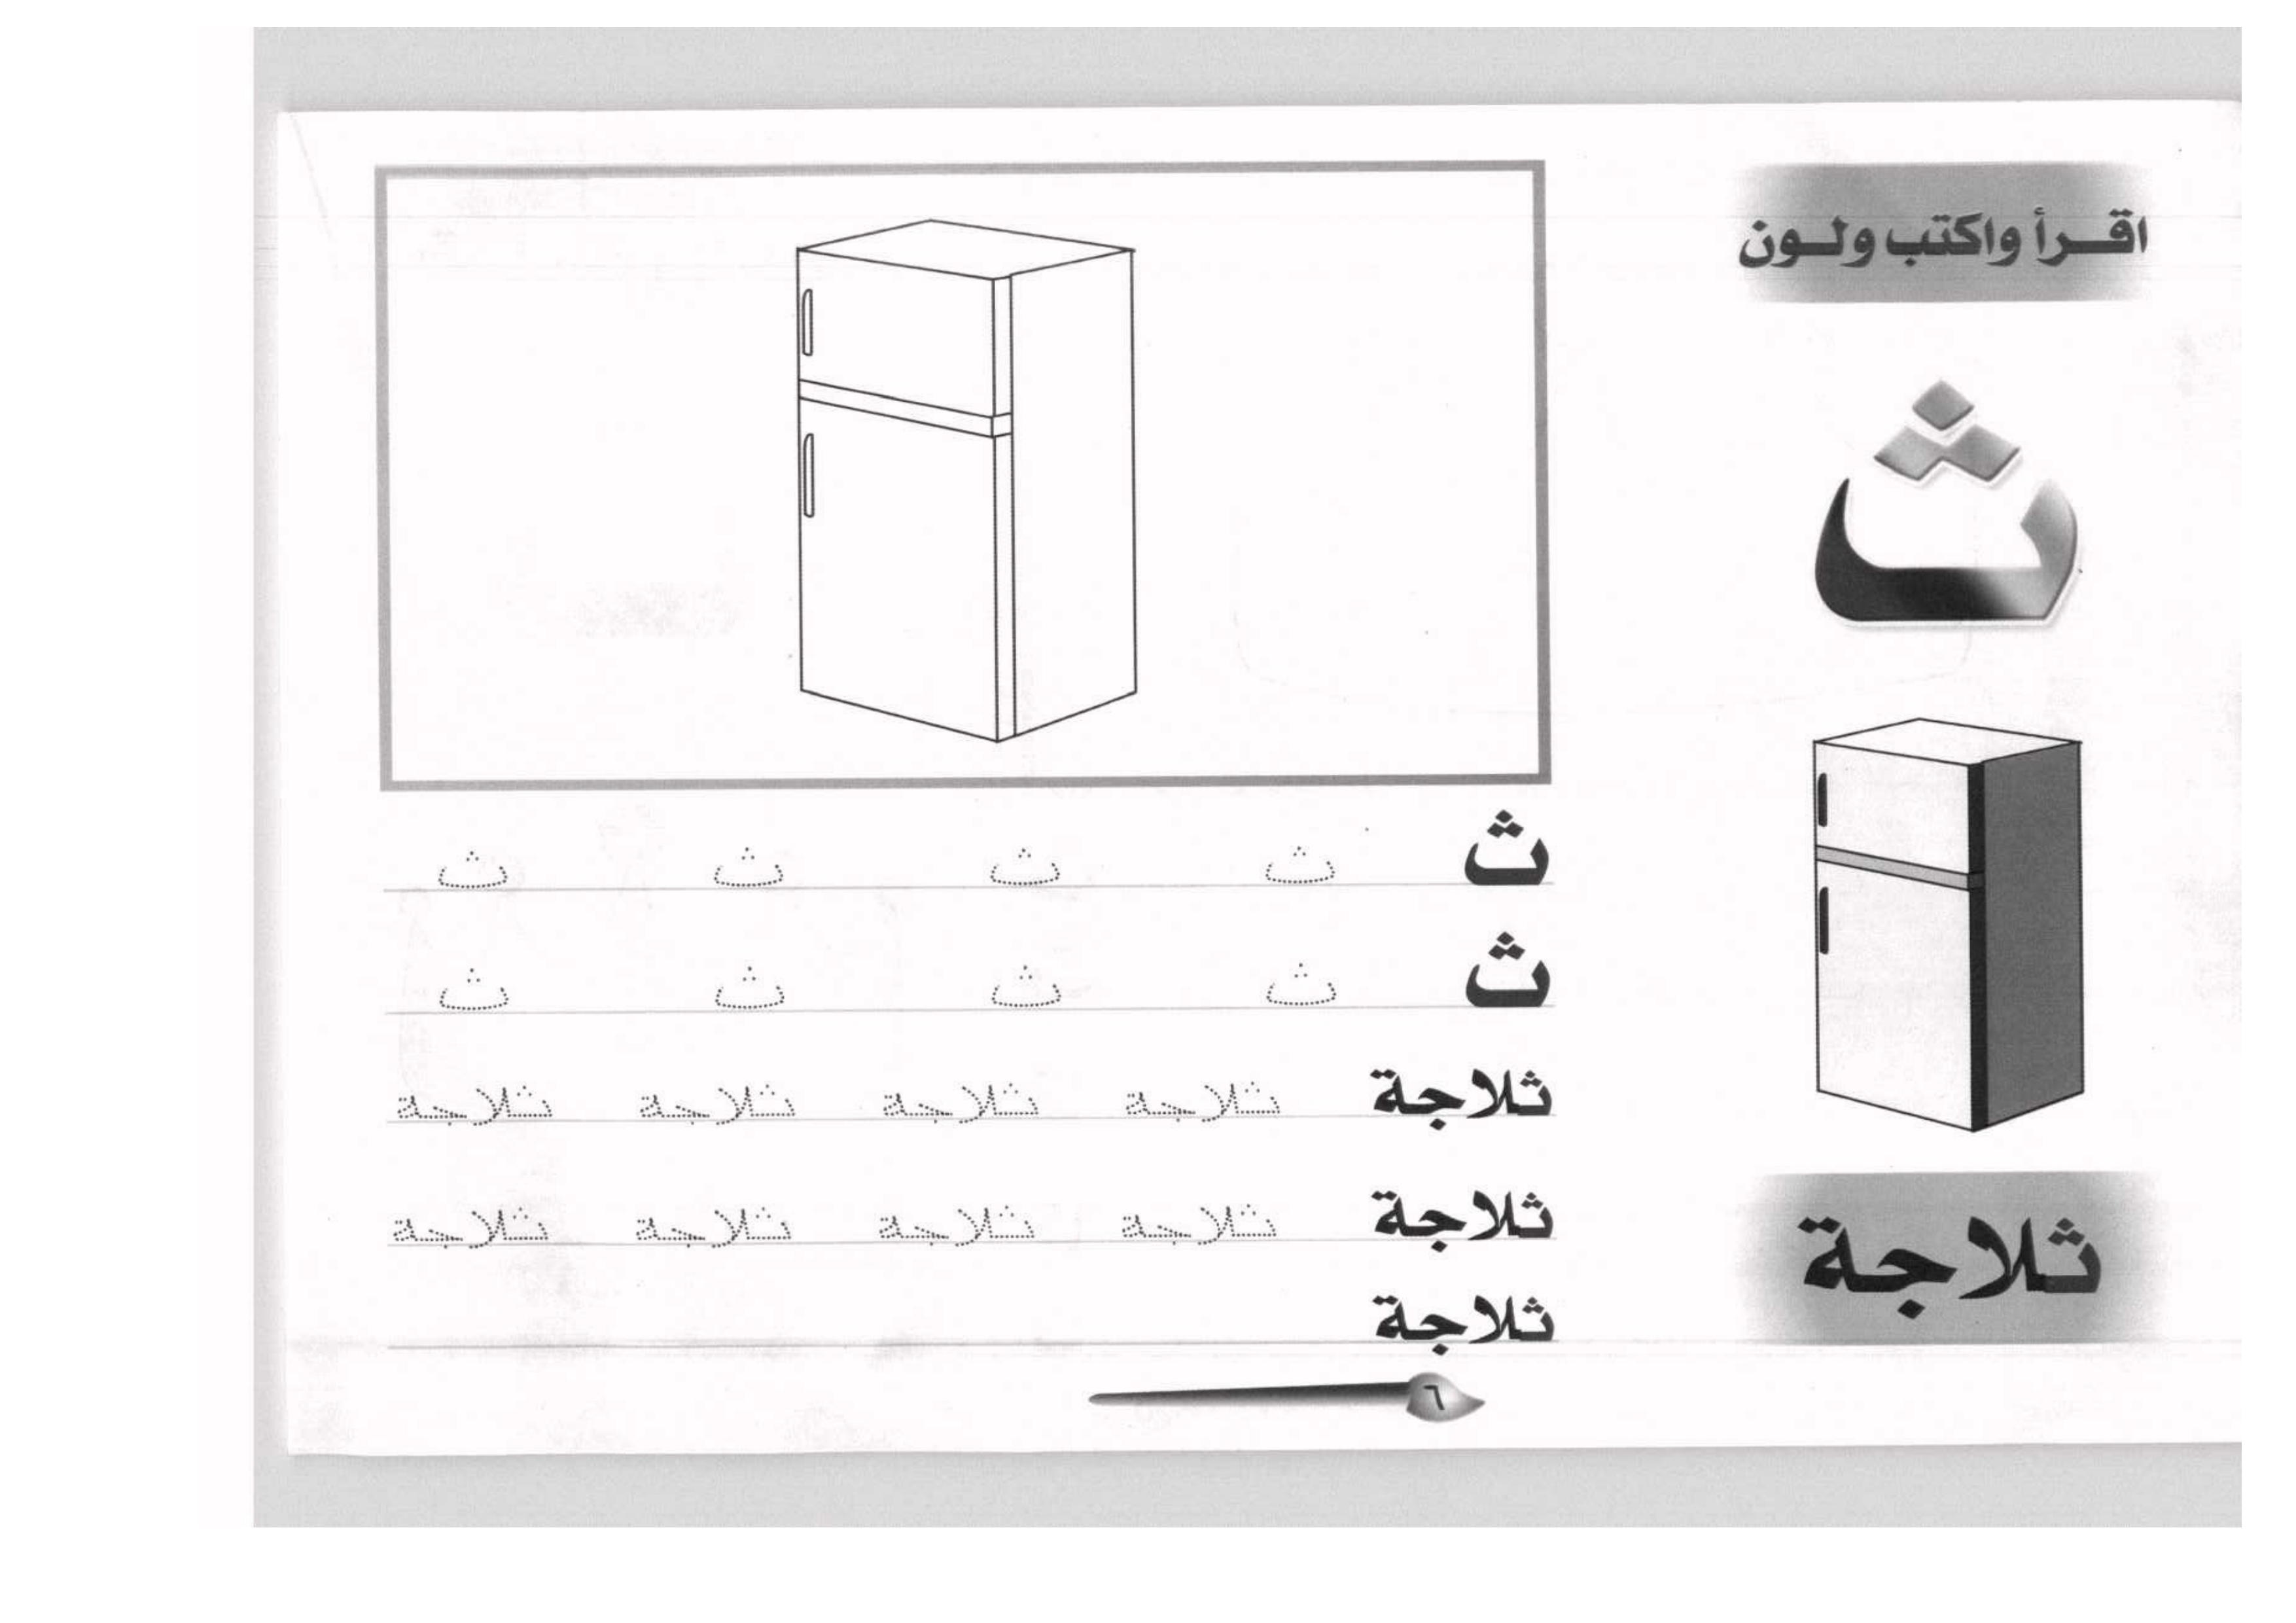 اقرأ واكتب ولون
ث
ثلاجة
ث ث ث ث ث
ث ث ث ث ث
ثلاجة ثلاجة ثلاجة ثلاجة ثلاجة
ثلاجة ثلاجة ثلاجة ثلاجة ثلاجة
ثلاجة
٦